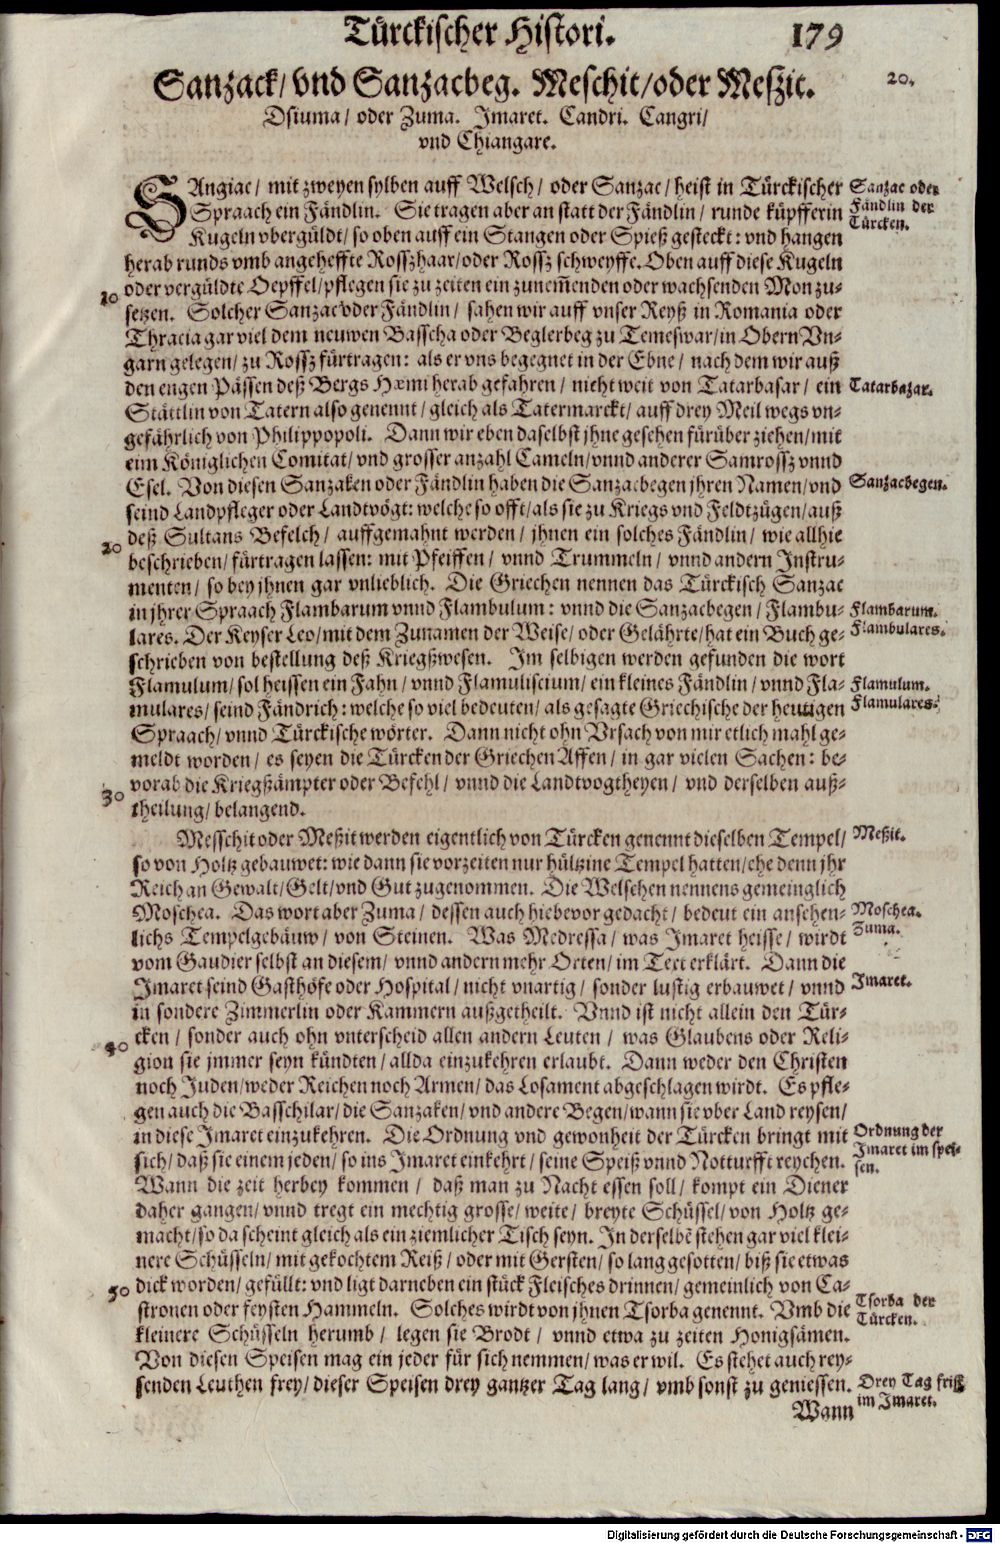 Türckischer Histori. 179
Sanzack/ vnd Sanzacbeg. Meschit/oder Meszit. 20.
Dsiuma/ oder Zuma. Imaret. Candri. Cangri/
vnd Chiangare.
SAngiac/ mit zweyen sylben auff Welsch/ oder Sanzac/ heist in Türckischer
Spraach ein Fändlin. Sie tragen aber an statt der Fändlin/ runde küpfferin
Kugeln vbergüldt/ so oben auff ein Stangen oder Spieß gesteckt: vnd hangen
herab runds vmb angeheffte Rosszhaar/oder Rossz schweyffe. Oben auff diese Kugeln
oder vergüldte Oepffel/pflegen sie zu zeiten ein zunem̃enden oder wachsenden Mon zu-
setzen. Solcher Sanzac oder Fändlin/ sahen wir auff vnser Reyß in Romania oder
Thracia gar viel dem neuwen Basscha oder Beglerbeg zu Temeswar/in Obern Vn-
garn gelegen/ zu Rossz fürtragen: als er vns begegnet in der Ebne/ nach dem wir auß
den engen Pässen deß Bergs Hæmi herab gefahren/ nicht weit von Tatarbasar/ ein
Stättlin von Tatern also genennt/ gleich als Tatermarckt/ auff drey Meil wegs vn-
gefährlich von Philippopoli. Dann wir eben daselbst jhne gesehen fürüber ziehen/mit
eim Königlichen Comitat/ vnd grosser anzahl Cameln/vnnd anderer Samrossz vnnd
Esel. Von diesen Sanzaken oder Fändlin haben die Sanzacbegen jhren Namen/vnd
seind Landpfleger oder Landtvögt: welche so offt/als sie zu Kriegs vnd Feldtzügen/auß
deß Sultans Befelch/ auffgemahnt werden/ jhnen ein solches Fändlin/ wie allhie
beschrieben/ fürtragen lassen: mit Pfeiffen/ vnnd Trummeln/ vnnd andern Instru-
menten/ so bey jhnen gar vnlieblich. Die Griechen nennen das Türckisch Sanzac
in jhrer Spraach Flambarum vnnd Flambulum: vnnd die Sanzacbegen/ Flambu-
lares. Der Keyser Leo/mit dem Zunamen der Weise/ oder Gelährte/hat ein Buch ge-
schrieben von bestellung deß Kriegßwesen. Im selbigen werden gefunden die wort
Flamulum/ sol heissen ein Fahn/ vnnd Flamuliscium/ ein kleines Fändlin/ vnnd Fla-
mulares/ seind Fändrich: welche so viel bedeuten/ als gesagte Griechische der heutigen
Spraach/ vnnd Türckische wörter. Dann nicht ohn Vrsach von mir etlich mahl ge-
meldt worden/ es seyen die Türcken der Griechen Affen/ in gar vielen Sachen: be-
vorab die Kriegßämpter oder Befehl/ vnnd die Landtvogtheyen/ vnd derselben auß-
theilung/ belangend.
Messchit oder Meßit werden eigentlich von Türcken genennt dieselben Tempel/
so von Holtz gebauwet: wie dann sie vorzeiten nur hültzine Tempel hatten/ehe denn jhr
Reich an Gewalt/Gelt/vnd Gut zugenommen. Die Welschen nennens gemeinglich
Moschea. Das wort aber Zuma/ dessen auch hiebevor gedacht/ bedeut ein ansehen-
lichs Tempelgebäuw/ von Steinen. Was Medressa/ was Imaret heisse/ wirdt
vom Gaudier selbst an diesem/ vnnd andern mehr Orten/ im Text erklärt. Dann die
Imaret seind Gasthöfe oder Hospital/ nicht vnartig/ sonder lustig erbauwet/ vnnd
in sondere Zimmerlin oder Kammern außgetheilt. Vnnd ist nicht allein den Tür-
cken/ sonder auch ohn vnterscheid allen andern Leuten/ was Glaubens oder Reli-
gion sie jmmer seyn kündten/ allda einzukehren erlaubt. Dann weder den Christen
noch Juden/weder Reichen noch Armen/ das Losament abgeschlagen wirdt. Es pfle-
gen auch die Basschilar/ die Sanzaken/ vnd andere Begen/wann sie vber Land reysen/
in diese Imaret einzukehren. Die Ordnung vnd gewonheit der Türcken bringt mit
sich/ daß sie einem jeden/ so ins Imaret einkehrt/ seine Speiß vnnd Notturfft reychen.
Wann die zeit herbey kommen/ daß man zu Nacht essen soll/ kompt ein Diener
daher gangen/ vnnd tregt ein mechtig grosse/ weite/ breyte Schüssel/ von Holtz ge-
macht/ so da scheint gleich als ein ziemlicher Tisch seyn. In derselbẽ stehen gar viel klei-
nere Schüsseln/ mit gekochtem Reiß/ oder mit Gersten/ so lang gesotten/ biß sie etwas
dick worden/ gefüllt: vnd ligt darneben ein stück Fleisches drinnen/ gemeinlich von Ca-
stronen oder feysten Hammeln. Solches wirdt von jhnen Tsorba genennt. Vmb die
kleinere Schüsseln herumb/ legen sie Brodt/ vnnd etwa zu zeiten Honigsämen.
Von diesen Speisen mag ein jeder für sich nemmen/ was er wil. Es stehet auch rey-
senden Leuthen frey/ dieser Speisen drey gantzer Tag lang/ vmb sonst zu geniessen.
Wann
Sanzac oder
Fändlin der
Türcken.
Tatarbazar.
Sanzacbegen.
Flambarum.
Flambulares.
Flamulum.
Flamulares.
Meßit.
Moschea.
Zuma.
Imaret.
Ordnung der
Imaret im spei-
sen.
Tsorba der
Türcken.
Drey Tag frist
im Imaret.
10
20
30
40
50
Digitalisierung gefördert durch die Deutsche Forschungsgemeinschaft - DFG